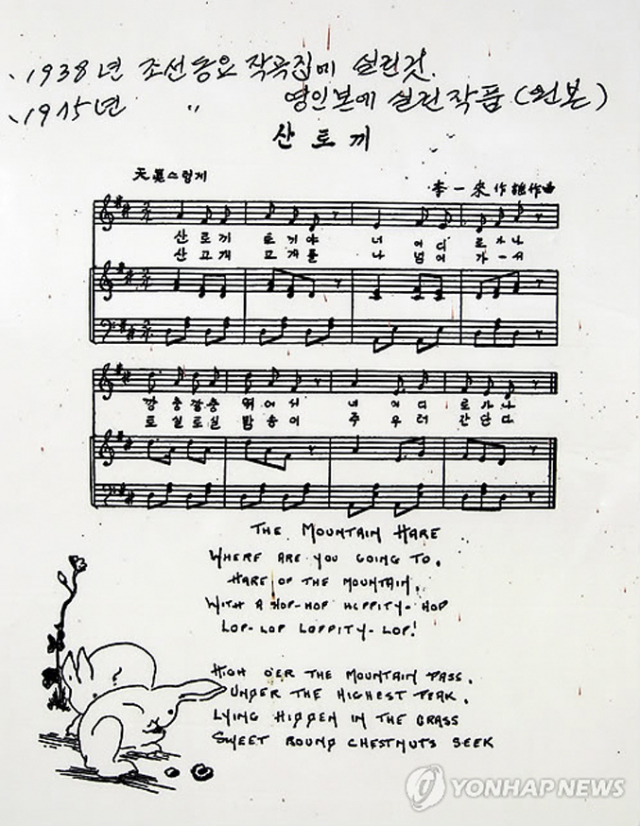 1938년 조선동요 작곡집에 실린것.
1975년 〃 영인본에 실린작품(원본)
산토끼
天眞스럽게 李一來 作謠作曲
산토끼 토끼야 너 어디 로가나
산고개 고개를 나 넘어 가-서
깡충깡충 뛰어서 너 어디 로가나
토실토실 밤송이 주우러 간단다
THE MOUNTAIN HARE
WHERE ARE YOU GOING TO,
HARE OF THE MOUNTAIN,
WITH A HOP-HOP HIPPITY-HOP
LOP-LOP LOPPITY-LOP!
HIGH O'ER THE MOUNTAIN PASS,
UNDER THE HIGHEST PEAK,
LYING HIDDEN IN THE GRASS
SWEET ROUND CHESTNUTS SEEK
YONHAP NEWS